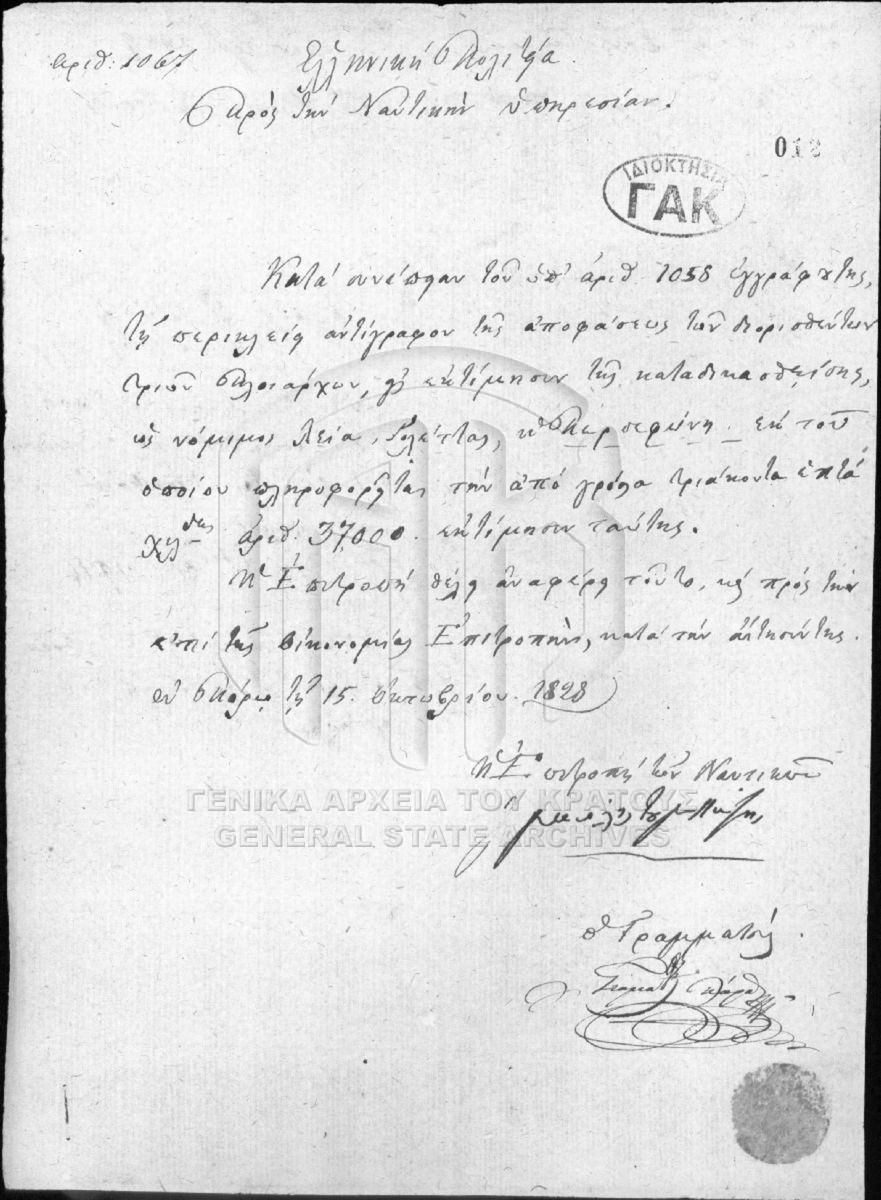 αριθ: 1067 Ἑλληνικὴ Πολιτεία.
Πρὸς τὴν Ναυτικὴν ὑπηρεσίαν.
012
ΙΔΙΟΚΤΗΣΙΑ
ΓΑΚ
Κατὰ συνέπειαν τοῦ ὑπ' ἀριθ 1058 ἐγγράφου της,
τῇ περικλείει ἀντίγραφον τῆς ἀποφάσεως τῶν διορισθέντων
τριῶν πλοιάρχων, εἰς ἐκτίμησιν τῆς καταδικασθείσης,
ὡς νόμιμος λεία, Γολέττας, ἡ Περσεφώνη. ἐκ τοῦ
ὁποίου πληροφορεῖται τὴν ἀπὸ γρόσια τριάκοντα ἑπτὰ
χιλδας ἀριθ. 37,000. ἐκτίμησιν ταύτης.
Ἡ Ἐπιτροπὴ θέλει ἀναφέρει τοῦτο, καὶ πρὸς τὴν
ἐπὶ τῆς Οἰκονομίας Ἐπιτροπὴν, κατὰ τὴν αἴτησίν της.
ἐν Πόρῳ τῇ 15. ὀκτωβρίου. 1828
Ἡ Ἐπιτροπὴ τῶν Ναυτικῶν
ΓΕΝΙΚΑ ΑΡΧΕΙΑ ΤΟΥ ΚΡΑΤΟΥΣ
GENERAL STATE ARCHIVES
ὁ Γραμματεὺς.